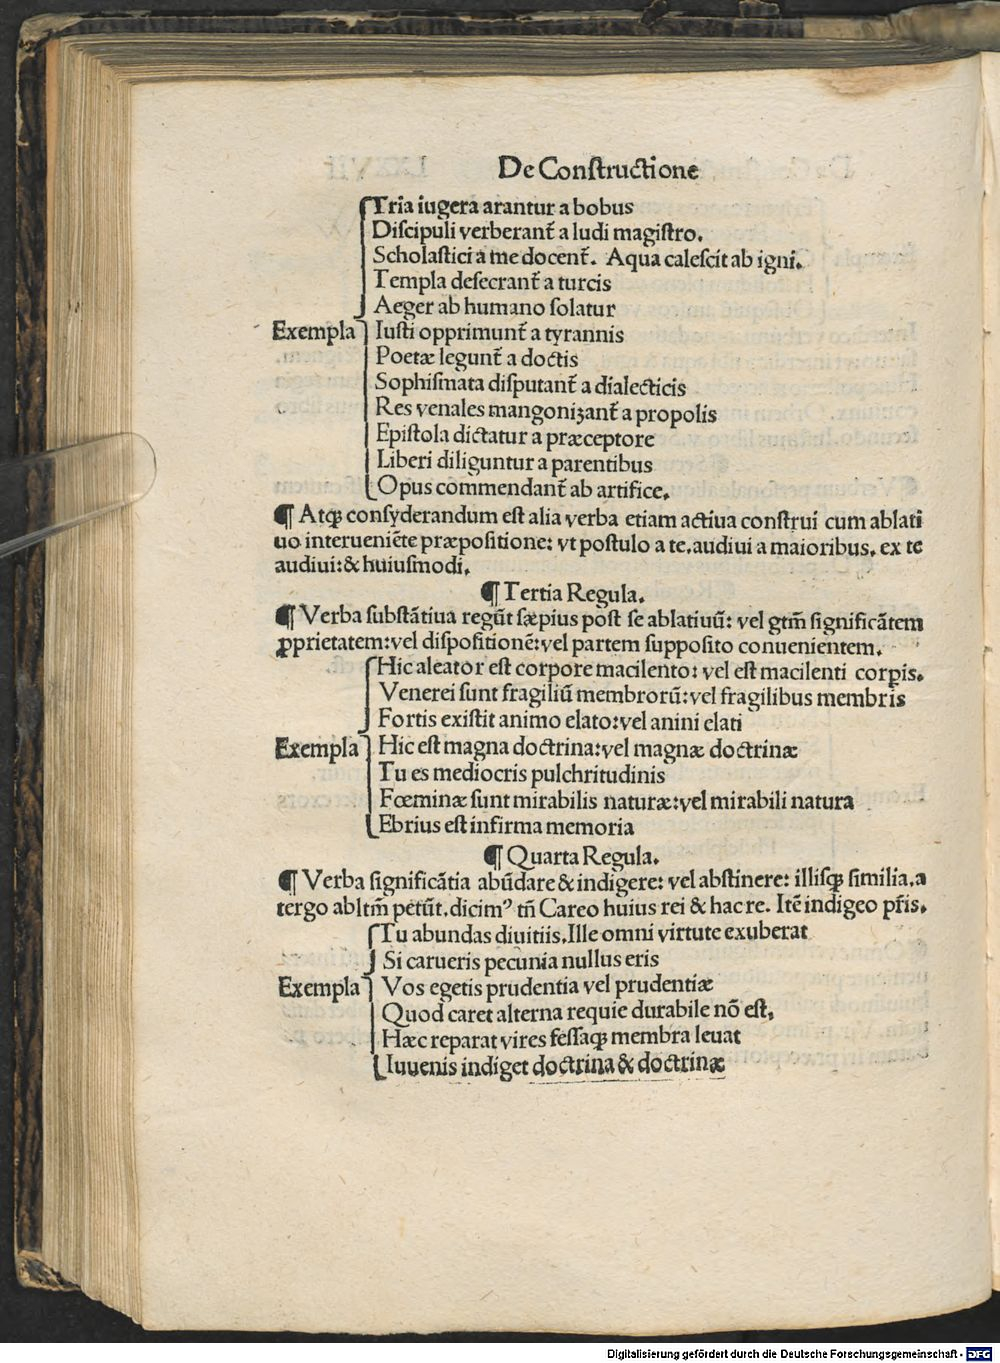 De Conſtructione
Tria iugera arantur a bobus
Diſcipuli verberant̃ a ludi magiſtro.
Scholaſtici a me docent̃. Aqua caleſcit ab igni.
Templa deſecrant̃ a turcis
Aeger ab humano ſolatur
Exempla Iuſti opprimunt̃ a tyrannis
Poetæ legunt̃ a doctis
Sophiſmata diſputant̃ a dialecticis
Res venales mangonizant̃ a propolis
Epiſtola dictatur a præceptore
Liberi diliguntur a parentibus
Opus commendant̃ ab artifice.
¶ Atqꝫ conſyderandum eſt alia verba etiam actiua conſtrui cum ablati
uo interueniẽte præpoſitione: vt poſtulo a te. audiui a maioribus. ex te
audiui: & huiuſmodi.
¶ Tertia Regula.
¶ Verba ſubſtãtiua regũt ſæpius poſt ſe ablatiuũ: vel gtm̃ ſignificãtem
ꝓprietatem: vel diſpoſitionẽ: vel partem ſuppoſito conuenientem.
Hic aleator eſt corpore macilento: vel eſt macilenti corꝑis.
Venerei ſunt fragiliũ membrorũ: vel fragilibus membris
Fortis exiſtit animo elato: vel anini elati
Exempla Hic eſt magna doctrina: vel magnæ doctrinæ
Tu es mediocris pulchritudinis
Fœminæ ſunt mirabilis naturæ: vel mirabili natura
Ebrius eſt infirma memoria
¶ Quarta Regula.
¶ Verba ſignificãtia abũdare & indigere: vel abſtinere: illiſqꝫ ſimilia. a
tergo abltm̃ petũt. dicimꝰ tñ Careo huius rei & hac re. Itẽ indigeo pr̃is.
Tu abundas diuitiis. Ille omni virtute exuberat
Si carueris pecunia nullus eris
Exempla Vos egetis prudentia vel prudentiæ
Quod caret alterna requie durabile nõ eſt.
Hæc reparat vires feſſaqꝫ membra leuat
Iuuenis indiget doctrina & doctrinæ
Digitalisierung gefördert durch die Deutsche Forschungsgemeinschaft - DFG